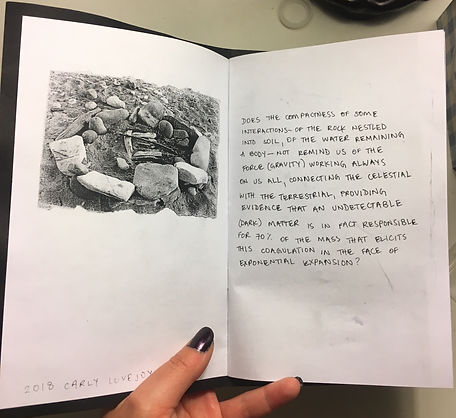 2018 CARLY LOVEJOY
DOES THE COMPACTNESS OF SOME
INTERACTIONS—OF THE ROCK NESTLED
INTO SOIL, OF THE WATER REMAINING
A BODY—NOT REMIND US OF THE
FORCE (GRAVITY) WORKING ALWAYS
ON US ALL, CONNECTING THE CELESTIAL
WITH THE TERRESTRIAL, PROVIDING
EVIDENCE THAT AN UNDETECTABLE
(DARK) MATTER IS IN FACT RESPONSIBLE
FOR 70% OF THE MASS THAT ELICITS
THIS COAGULATION IN THE FACE OF
EXPONENTIAL EXPANSION?